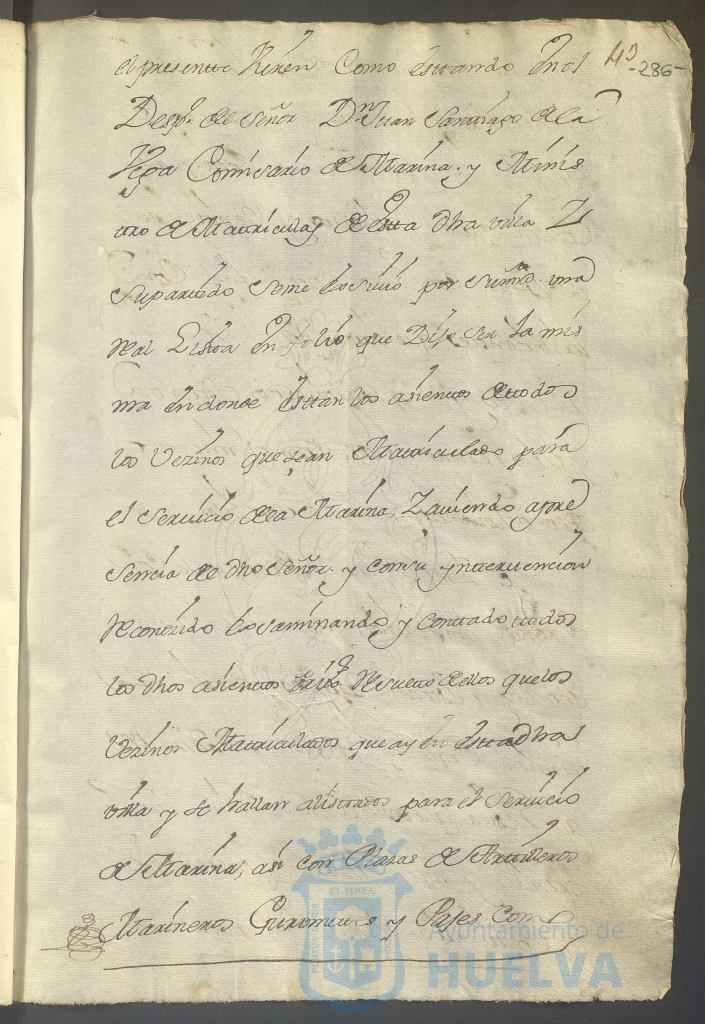 el presente Kiren Como esttando En el
Despo. de el señor Dn. Juan Santtiago de la
Vega Comisario de Marina. y Minis
tro de Mattriculas de Estta dha villa Z
su parttido se me Exsivió por su mrd. una
Real Listta En folio que Dijo ser la mis
ma En donde Esttan los asientos de ttodos
los Vezinos que sean Mattriculado para
el servicio de la Marina, Z aviendo a pre
sencia de dho señor. y con su ynttervencion
Reconozido Exsaminando y conttado ttodos
los dhos asientos Resultó de ellos que los
Vezinos Mattriculados que ay En estta dha
villa y se hallan alistados para el servicio
de Marina, asi con Plazas de Arttilleros
Marineros Gurometes y Pajes Como
43
-286-
ET TERRAE
Ayuntamiento de
HUELVA